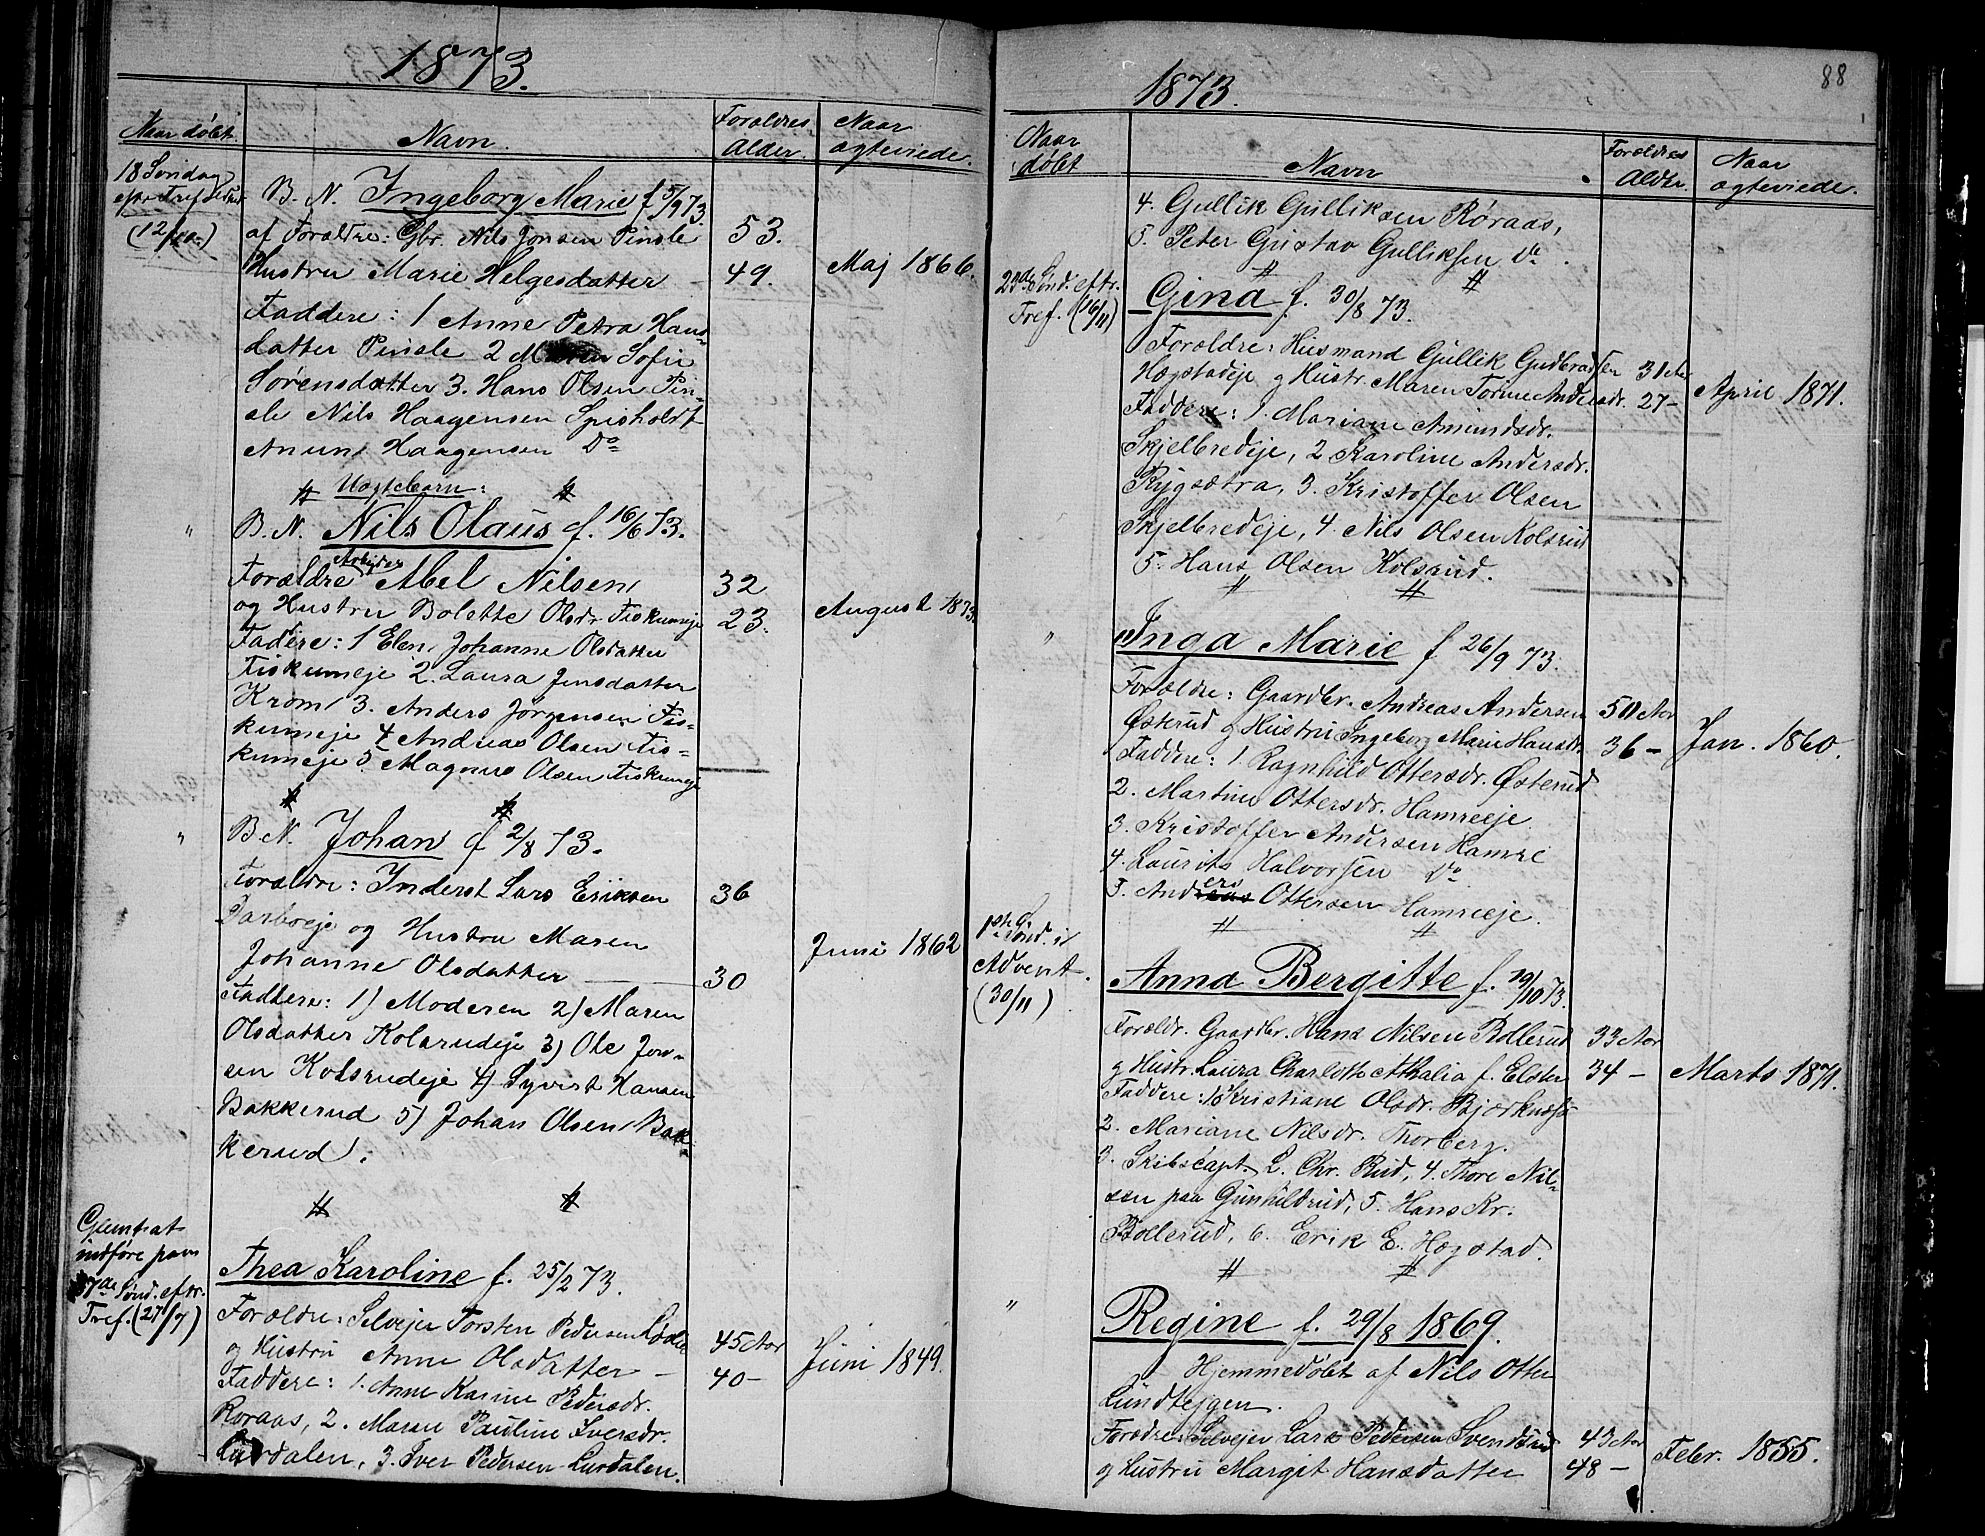 1873.
Naar döbt.
Navn.
Forældres Alder.
Naar ægteviede.
18 Søndag
eftr Tref
(12/10)
B. N. Ingeborg Marie f 5/9 73.
af Forældre: Gbr. Nils Jonsen Pinsle
53.
Hustru Marie Helgesdatter
49.
Maj 1866.
Faddere: 1 Anne Petra Hans-
datter Pinsle 2 Maren Sofie
Sørensdatter 3. Hans Olsen Pin-
sle Nils Haagensen Spisholdt
Anun Haagensen Do
Uægtebarn:
"
B. N. Nils Olaus f. 16/6 73.
Forældre Arbejder Abel Nilsen
32
og Hustru Bolette Olsdr. Fiskumeje
23.
August 1873.
Fadere: 1 Elen Johanne Olsdatter
Fiskumeje 2. Laura Jensdatter
Krom 3. Anders Jørgensen Fis-
kumeje 4 Andreas Olsen Fis-
kumeje 5. Magnus Olsen Fiskumeje
"
B.N. Johan f 2/8 73.
Forældre: Inderst Lars Eriksen
36
Darboeje og Hustru Maren
Johanne Olsdatter
30
Juni 1862
Faddere: 1) Moderen 2) Maren
Olsdatter Kolsrudeje 3) Ole Jon-
sen Kolsrudeje 4) Syvert Hansen
Bakkerud 5) Johan Olsen Bak-
kerud.
Glemt at
indføre paa
17de Sönd. eftr.
Tref. (27/9)
Thea Karoline f. 25/2 73.
Forældre: Selvejer Torsten Pedersen
45 Aar
og Hustru Anne Olsdatter
40 -
Juni 1849.
Faddere: 1. Anne Karine Pedersdr.
Røraas, 2. Maren Pauline Iversdr.
Lurdalen, 3. Iver Pedersen Lurdalen.
88
1873.
Naar döbt
Navn
Forældres Alder.
Naar ægteviede.
4. Gullik Gulliksen Røraas,
5. Peter Gustav Gulliksen Do.
23de Sönd. eftr.
Tref. (16/11)
Gina f. 30/8 73.
Forældre: Husmand Gullik Gudbrandsen
31 Aar
Hægstadeje og Hustr. Maren Torine Andersdr.
27 -
April 1871.
Faddere: 1. Mariane Amundsdr.
Skjelbredeje, 2 Karoline Andersdr.
Rygsætra, 3. Kristoffer Olsen
Skjelbredeje, 4. Nils Olsen Kolsrud
5. Hans Olsen Kolsrud.
"
Inga Marie f 26/9 73.
Forældre: Gaardbr. Andreas Andersen
50 Aar
Østerud og Hustru Ingeborg Marie Hansdr.
36 -
Jan. 1860.
Faddere: 1. Ragnhild Ottersdr. Østerud
2. Martine Ottersdr. Hamreeje
3. Kristoffer Andersen Hamre
4. Laurits Halvorsen Do.
5. Anders Ottersen Hamreeje.
1ste Sönd. i
Advent.
(30/11)
Anna Bergitte f. 19/10 73.
Forældr. Gaardbr. Hans Nilsen Bollerud
33 Aar
og Hustr. Laura Charlotte Athalia f. Elster
34 -
Marts 1871.
Faddere: 1. Kristiane Olsdr. Bjørknæs
2. Mariane Nilsdr. Thorberg.
3. Skibscapt. L. Chr. Rud, 4. Thore Nil-
sen paa Gunhildrud, 5. Hans Kr.
Bollerud, 6. Erik E. Hægstad.
"
Regine f. 29/8 1869.
Hjemmedöbt af Nils Otter
Lundtejgen.
Forældre: Selvejer Lars Pedersen Svendsrud
43 Aar
og Hustru Margit Hansdatter
48 -
Febr. 1855.